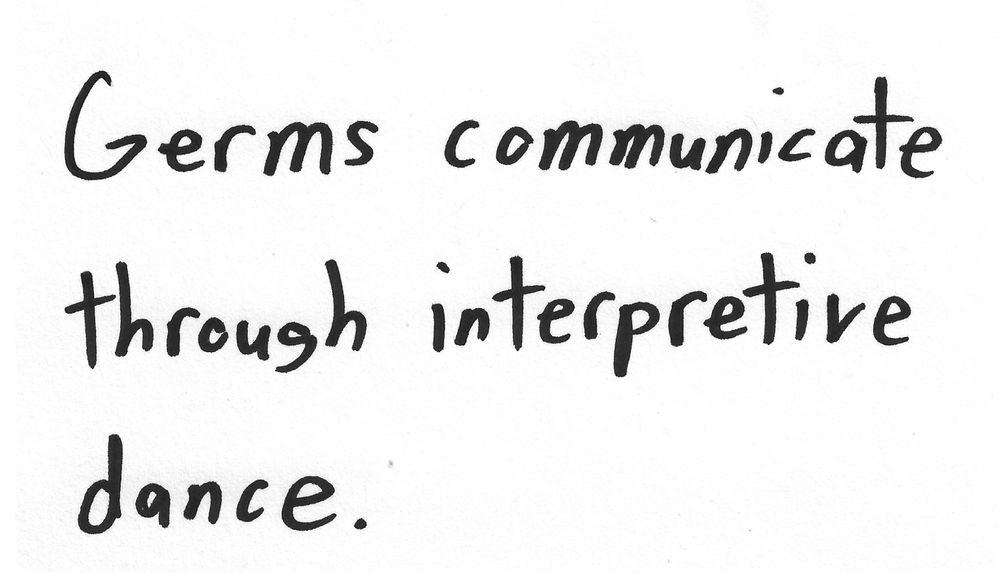 Germs communicate
through interpretive
dance.